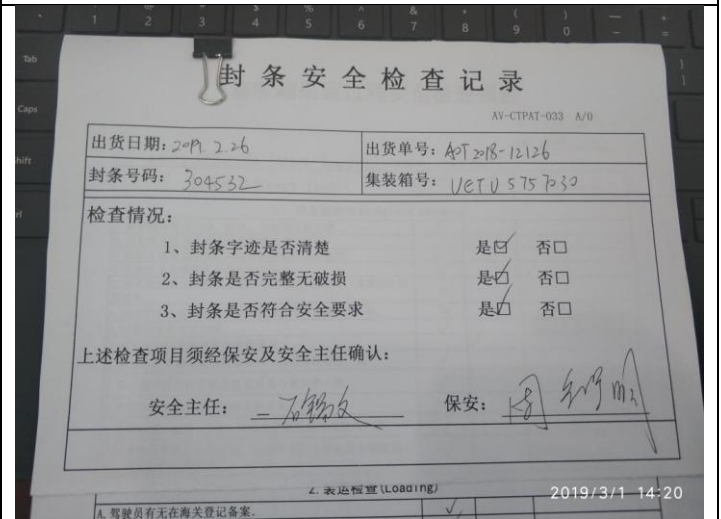 封条安全检查记录
AV-CTPAT-033 A/0
出货日期：2019.2.26 出货单号：AOT2018-12126
封条号码：304532 集装箱号：UETU5757030
检查情况：
1、封条字迹是否清楚 是☑ 否□
2、封条是否完整无破损 是☑ 否□
3、封条是否符合安全要求 是☑ 否□
上述检查项目须经保安及安全主任确认：
安全主任： 保安：
2. 装运检查(Loading)
A. 驾驶员有无在海关登记备案.
2019/3/1 14:20
Tab
Caps